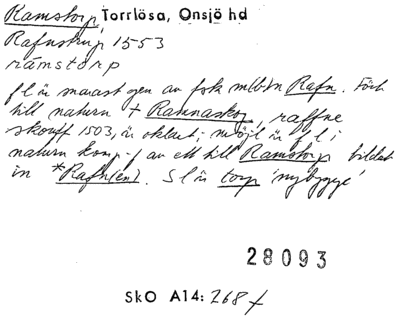 Ramstorp, Torrlösa, Onsjö hd
Rafnstrup 1553
ramstorp
fl är snarast gen av fsk mlbtn Rafn. Förh
till naturn + Ramnaskog, raffne
skouff 1503, är oklart; möjl är fl i
naturn komp-f av ett till Ramstorp bildat
in *Rafn(en). Sl är torp 'nybygge'
28093
SkO A14: 268 f